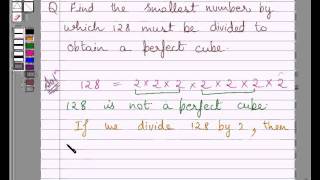 Q Find the smallest number by
which 128 must be divided to
obtain a perfect cube.
Soln
128 = 2 × 2 × 2 × 2 × 2 × 2 × 2
128 is not a perfect cube.
If we divide 128 by 2, then